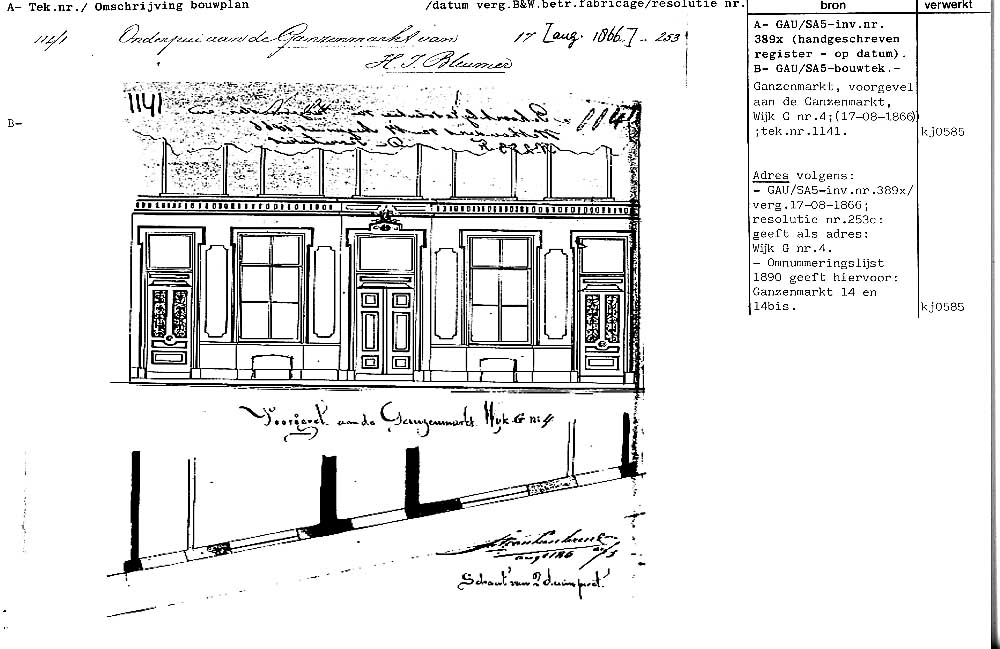 A- Tek.nr./ Omschrijving bouwplan /datum verg.B&W.betr.fabricage/resolutie nr.
bron
verwerkt
Onderpui aan de Ganzenmarkt van 17 [aug. 1866.] .. 253
H. J. Bleumer
B-
1141
Voorgevel aan de Ganzenmarkt Wijk G nº 4
Schaal van 2 duim p. el.
A- GAU/SA5-inv.nr.
389x (handgeschreven
register - op datum).
B- GAU/SA5-bouwtek.-
Ganzenmarkt, voorgevel
aan de Ganzenmarkt,
Wijk G nr.4;(17-08-1866)
;tek.nr.1141.
kj0585
Adres volgens:
- GAU/SA5-inv.nr.389x/
verg.17-08-1866;
resolutie nr.253c:
geeft als adres:
Wijk G nr.4.
- Omnummeringslijst
1890 geeft hiervoor:
Ganzenmarkt 14 en
14bis.
kj0585